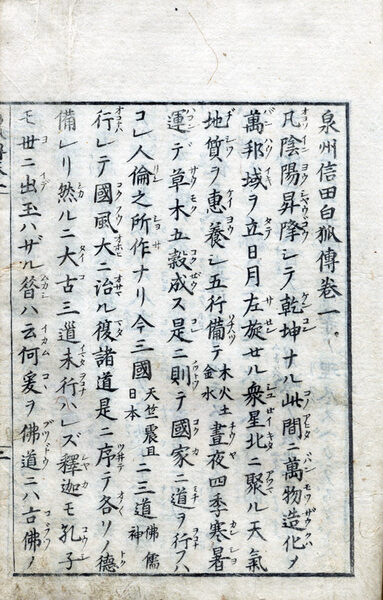 泉州信田白狐傳卷一
凡陰陽昇降シテ乾坤ナル此間ニ萬物造化ヲ
萬邦域ヲ立日月左旋セル衆星北ニ聚ル天氣
地質ヲ惠養シ五行備テ木火土金水晝夜四季寒暑
運デ草木五穀成ス是ニ則テ國家ニ道ヲ行フハ
コレ人倫之所作ナリ今三國天竺震旦日本ニ三道佛儒神
行レテ國風大ニ治ル復諸道是ニ序テ各リノ德
備レリ然ルニ大古三道未行ハレズ釋迦モ孔子
モ世ニ出玉ハザル昔ハ云何爰ヲ佛道ニハ古佛ノ